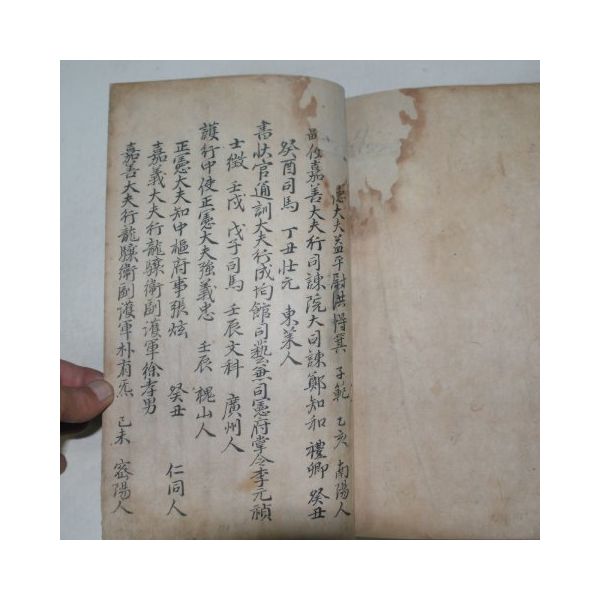 德大夫益平尉洪得箕 子範 乙亥 南陽人
嘉善大夫行司諫院大司諫鄭知和 禮卿 癸丑
癸酉司馬 丁丑壯元 東萊人
書狀官通訓大夫行成均館司藝兼司憲府掌令李元禎
士徵 壬戌 戊子司馬 壬辰文科 廣州人
護行中使正憲大夫強義忠 壬辰 槐山人
正憲大夫知中樞府事張炫 癸丑 仁同人
嘉義大夫行龍驤衛副護軍徐孝男
嘉善大夫行龍驤衛副護軍朴有炁 己未 密陽人